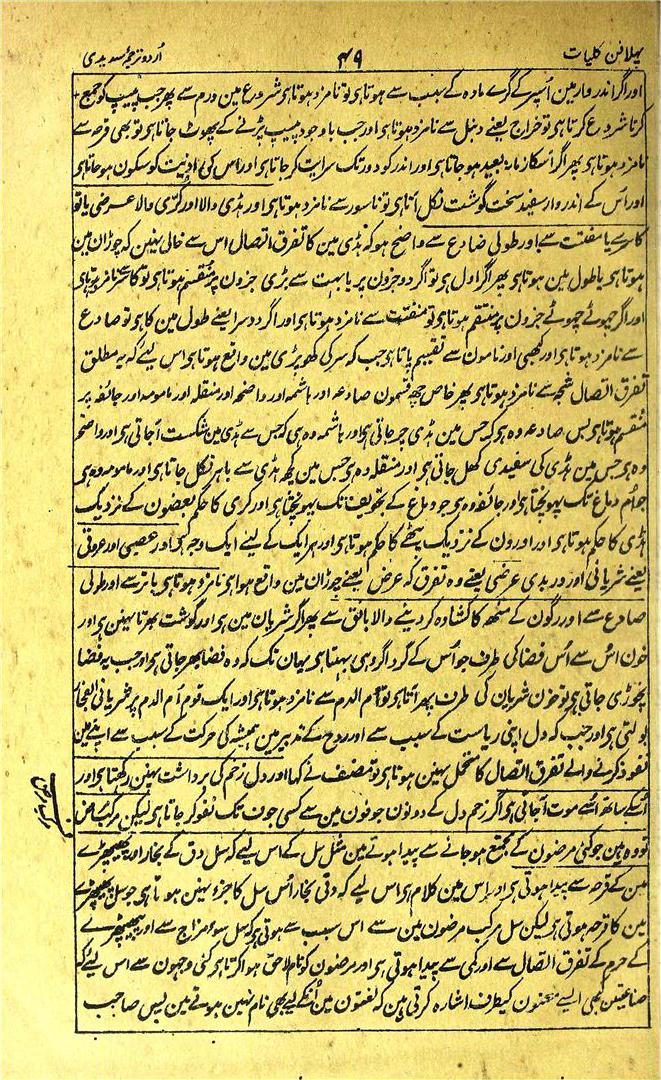 پہلا فن کلیات ۴۹ اُردو ترجمۂ سدیدی
اور اگر اندر وار مین اُسپر گرے مادہ کے سبب سے ہوتا ہی تو نامزد ہوتا ہی شروع مین ورم سے پھر جب پیپ کو جمع
کرنا شروع کرتا ہی تو خراج یعنے دنبل سے نامزد ہوتا ہی اور جب باوجود پیپ پڑنے کے پھوٹ جاتا ہی تو بھی قرحہ سے
نامزد ہوتا ہی پھر اگر اُسکا زمانہ بعید ہو جاتا ہی اور اندر کو دور تک سرایت کر جاتا ہی اور اُس کی اذیت کو سکون ہو جاتا ہی
اور اُس کے اندر وار سفید سخت گوشت نکل آتا ہی تو ناسور سے نامزد ہوتا ہی اور ہڈی والا اور کُرّی والا عرضی یا تو
کاسرے یا مفتت سے اور طولی صادع سے واضح ہو کہ ہڈی مین کا تفرق اتصال اس سے خالی نہین کہ چوڑان مین
ہوتا ہی یا طول مین ہوتا ہی پھر اگر اول ہی تو اگر دو جزون پر یا بہت سے بڑی جزون پر منقسم ہوتا ہی تو کاسر نامزد ہوتا ہی
اور اگر چھوٹے چھوٹے جزون پر منقسم ہوتا ہی تو مفتت سے نامزد ہوتا ہی اور اگر دوسرا یعنے طول مین کا ہی تو صادع
سے نامزد ہوتا ہی اور کبھی اور نامون سے تقسیم پاتا ہی جب کہ سر کی کھوپڑی مین واقع ہوتا ہی اس لیے کہ یہ مطلق
تفرق اتصال شجہ سے نامزد ہوتا ہی پھر خاص چھ قسمون صادعہ اور ہاشمہ اور واضحہ اور منقلہ اور مامومہ اور جائفہ پر
منقسم ہوتا ہی بس صادعہ وہ ہی کہ جس مین ہڈی چر جاتی ہی اور ہاشمہ وہ ہی کہ جس سے ہڈی مین شکست آ جاتی ہی اور واضحہ
وہ ہی جس مین ہڈی کی سفیدی کھل جاتی ہی اور منقلہ وہ ہی جس مین کچھ ہڈی سے باہر نکل جاتا ہی اور مامومہ وہ ہی
جو اُم دماغ تک پہونچتا ہی اور جائفہ وہ ہی جو دماغ کے تجویف تک پہونچتا ہی اور کری کا حکم بعضون کے نزدیک
ہڈی کا حکم ہوتا ہی اور اورون کے نزدیک پٹھے کا حکم ہوتا ہی اور ہر ایک کے لیے ایک وجہ ہی اور عصبی اور عروقی
یعنے شریانی اور وریدی عرضی یعنے وہ تفرق کہ عرض یعنے چوڑان مین واقع ہوا ہی نامزد ہوتا ہی باتر سے اور طولی
صادع سے اور رگون کے منھ کا کشادہ کر دینے والا بالق سے پھر اگر شریان مین ہی اور گوشت بھرتا نہین ہی اور
خون اُس سے اُس فضا کی طرف جو اُس کے گرداگرد ہی بہتا ہی یہان تک کہ وہ فضا بھر جاتی ہی اور جب یہ فضا
نچوڑی جاتی ہی تو خون شریان کی طرف پھر آتا ہی تو اُم الدم سے نامزد ہوتا ہی اور ایک قوم اُم الدم ہر شریانی انفجار
بولتی ہی اور جب کہ دل اپنی ریاست کے سبب سے اور روح کے تدبیر مین ہمیشہ کی حرکت کے سبب سے اپنے مین
نفوذ کرنے والے تفرق اتصال کا متحمل نہین ہوتا ہی تو مصنف نے کہا اور دل زخم کی برداشت نہین رکھتا ہی اور
اُسکے ساتھ اُسے موت آ جاتی ہی اگر زخم دل کے دونون جوفون مین سے کسی جوف تک نفوذ کر جاتا ہی لیکن مرکب امراض
تو وہ ہین جو کئی مرضون کے مجتمع ہو جانے سے پیدا ہوتے ہین مثل سل کے اس لیے کہ سل دق کے بخار اور پھیپھڑے
مین کے قرحہ سے پیدا ہوتی ہی اور اس مین کلام ہی اس لیے کہ دقی بخار اُس سل کا جزو نہین ہوتا ہی جو سل پھیپھڑے
مین کا قرحہ ہوتی ہی لیکن سل مرکب مرضون مین سے اس سبب سے ہوتی ہی کہ سل سوء مزاج سے اور پھیپھڑے
کے جرم کے تفرق اتصال سے اور کمی سے پیدا ہوتی ہی اور مرضون کو نام لاحق ہوا کرتا ہی کئی وجہون سے اس لیے کہ
صناعتین کبھی ایسے معنون کیطرف اشارہ کرتی ہین کہ لغتون مین اُنکے لیے بھی نام نہین ہوتے ہین پس صاحب